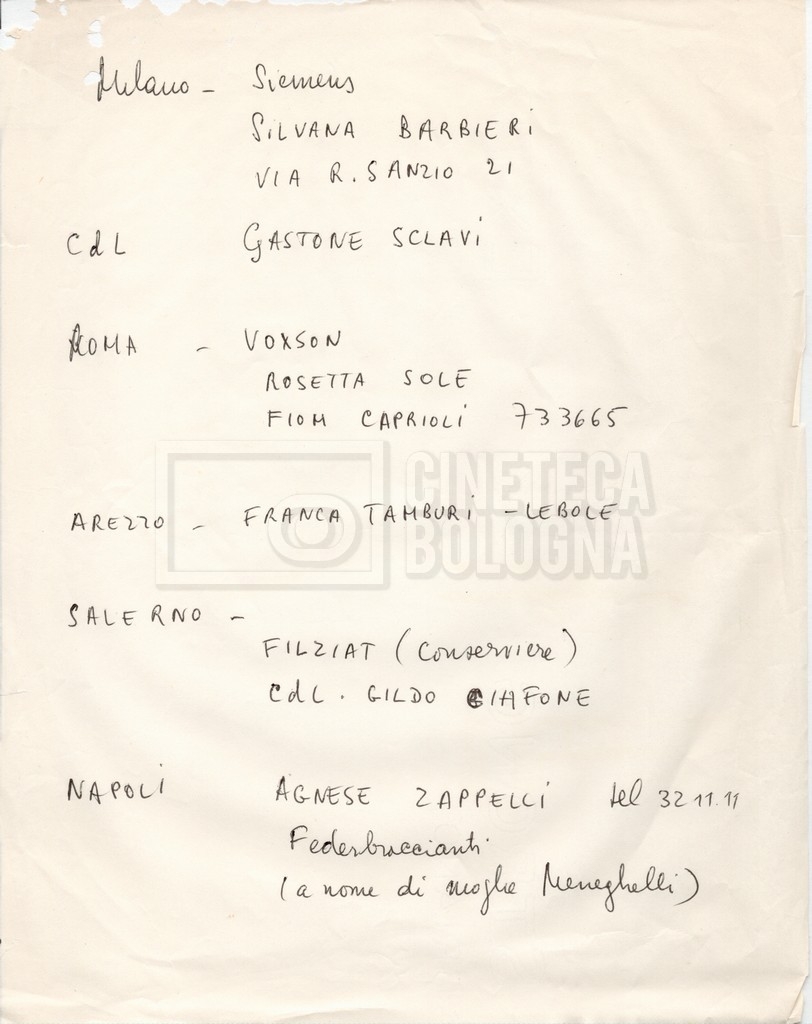 Milano - Siemens
SILVANA BARBIERI
VIA R. SANZIO 21
CdL GASTONE SCLAVI
ROMA - VOXSON
ROSETTA SOLE
FIOM CAPRIOLI 733665
CINETECA
BOLOGNA
AREZZO - FRANCA TAMBURI - LEBOLE
SALERNO -
FILZIAT (Conserviere)
CdL. GILDO
NAPOLI AGNESE ZAPPELLI tel 32.11.11
Federbraccianti
(a nome di moglie Meneghelli)